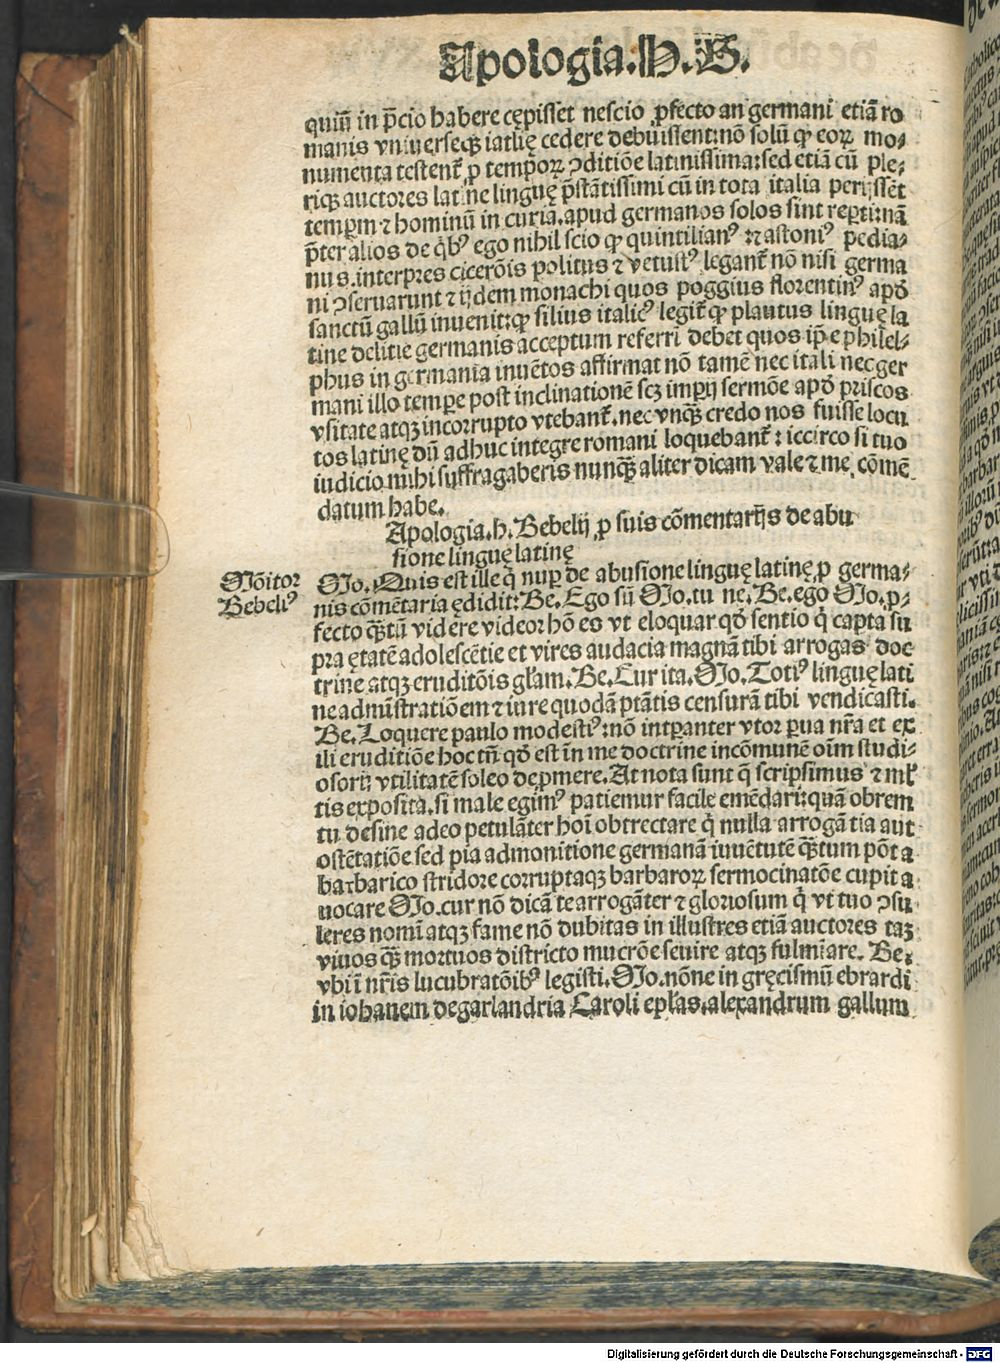 Apologia. H. B.
quiū in p̄cio habere cępisset nescio ꝓfecto an germani etiā ro
manis vniuerseqꝫ iatlię cedere debuissent: nō solū ꝙ eoꝝ mo⸗
numenta testent᷑ ꝓ tempoꝝ ↄditiōe latinissima: sed etiā cū ple⸗
riqꝫ auctores latine linguę p̄stātissimi cū in tota italia perijssēt
tempꝝ ⁊ hominū in curia. apud germanos solos sint reperti: nā
p̄ter alios de qͥbꝰ ego nihil scio ꝙ quintilianꝰ ⁊ astoniꝰ pedia⸗
nus. interpres cicerōis politus ⁊ vetustꝰ legant᷑ nō nisi germa
ni ↄseruarunt ⁊ ijdem monachi quos poggius florentinꝰ apđ
sanctū gallū inuenit: ꝙ silius italicꝰ legit᷑ ꝙ plautus linguę la
tine delitie germanis acceptum referri debet quos ip̄e philel⸗
phus in germania inuētos affirmat nō tamē nec itali nec ger
mani illo tempore post inclinationē scꝫ imperij sermōe apđ priscos
vsitate atqꝫ incorrupto vtebant᷑. nec vnqꝫ credo nos fuisse locu
tos latinę dū adhuc integre romani loquebant᷑: iccirco si tuo
iudicio mihi suffragaberis nunqꝫ aliter dicam vale ⁊ me cōmē
datum habe.
Apologia. h. Bebelij ꝓ suis cōmentarijs de abu
sione linguę latinę
Mōitor
Bebeliꝰ
Mo. Quis est ille q̇ nuper de abusione linguę latinę ꝓ germa⸗
nis cōmētaria ędidit: Be. Ego sū Mo. tu ne. Be. ego Mo. ꝓ⸗
fecto qꝫtū videre videor hō es vt eloquar qđ sentio q̇ capta su
pra ętatē adolescētie et vires audacia magnā tibi arrogas doc
trine atqꝫ eruditōis gl̄am. Be. Cur ita. Mo. Totiꝰ linguę lati
ne admīstratiōem ⁊ iure quodā ptātis censurā tibi vendicasti.
Be. Loquere paulo modestiꝰ: nō intꝑanter vtor parua nr̄a et ex
ili eruditiōe hoc tn̄ qđ est in me doctrine incōmunē oīm studi⸗
osorū vtilitatē soleo depromere. At nota sunt q̄ scripsimus ⁊ ml̄
tis exposita. si male egimꝰ patiemur facile emēdari: quā obrem
tu desine adeo petulāter hoī obtrectare q̇ nulla arrogātia aut
ostētatiōe sed pia admonitione germanā iuuētutē qꝫtum pōt a
barbarico stridore corruptaqꝫ barbaroꝝ sermocinatōe cupit a
uocare Mo. cur nō dicā te arrogāter ⁊ gloriosum q̇ vt tuo ↄsu
leres nomī atqꝫ fame nō dubitas in illustres etiā auctores taꝫ
viuos qꝫ mortuos districto mucrōe seuire atqꝫ fulmīare. Be.
vbi ī nr̄is lucubratōibꝰ legisti. Mo. nōne in gręcismū ebrardi
in iohanem degarlandria Caroli ep̄las. alexandrum gallum
Digitalisierung gefördert durch die Deutsche Forschungsgemeinschaft - DFG